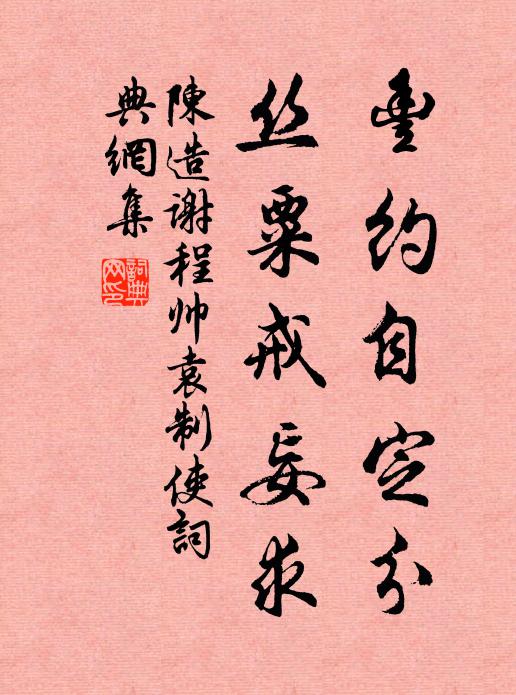 豊约自定分
丝粟戒妄求
陳造謝程帅袁制使詞
典網集
詞典網印